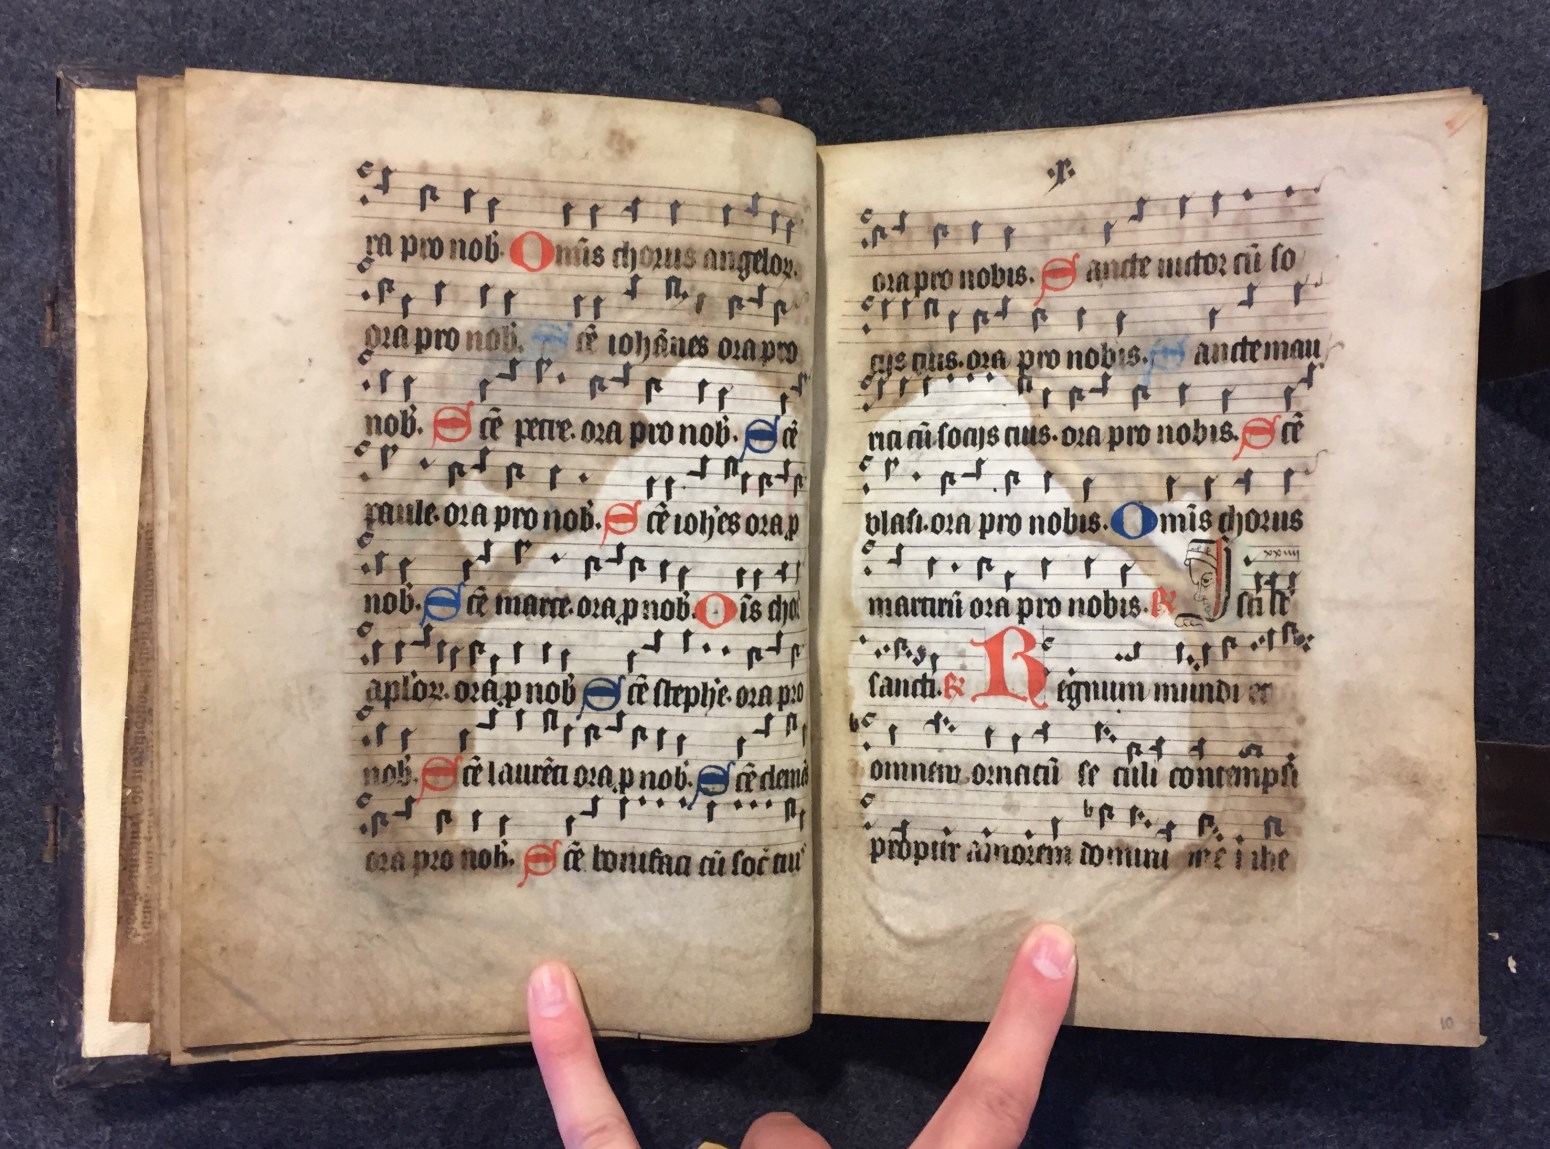 ra pro nob̅. Om̅is chorus angeloꝝ.
ora pro nob̅. Sc̅e ioha̅nes ora pro
nob̅. Sc̅e petre. ora pro nob̅. Sc̅e
paule. ora pro nob̅. Sc̅e ioh̅es ora ꝑ
nob̅. Sc̅e marce. ora ꝑ nob̅. Oi̅s cho
apl̅oꝝ. ora ꝑ nob̅ Sc̅e steph̅e. ora pro
nob̅. Sc̅e laure̅ti ora ꝑ nob̅. Sc̅e cleme̅
ora pro nob̅. Sc̅e bonifaci cu̅ soc̅ tuis
.x.
ora pro nobis. Sancte uictor cu̅ so
cijs tuis. ora pro nobis. Sancte mau
rici cu̅ socijs tuis. ora pro nobis. Sc̅e
blasi. ora pro nobis. Om̅is chorus
xxiiii
martiru̅ ora pro nobis. ℟ Isti st̅
sancti. ℟ Regnum mundi et
omnem ornatu̅ se culi contempsi
propter amorem domini mei ihe
10